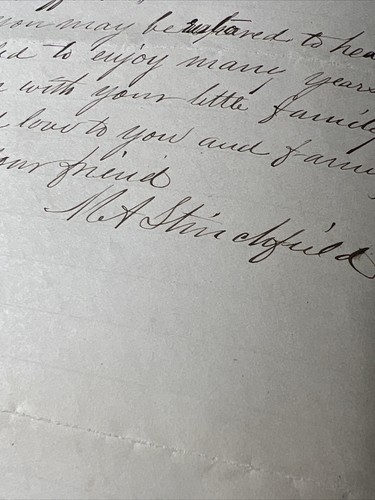 you may be restored to hea
ed to enjoy many years
with your little family
love to you and fami
your friend
M A Stinchfield